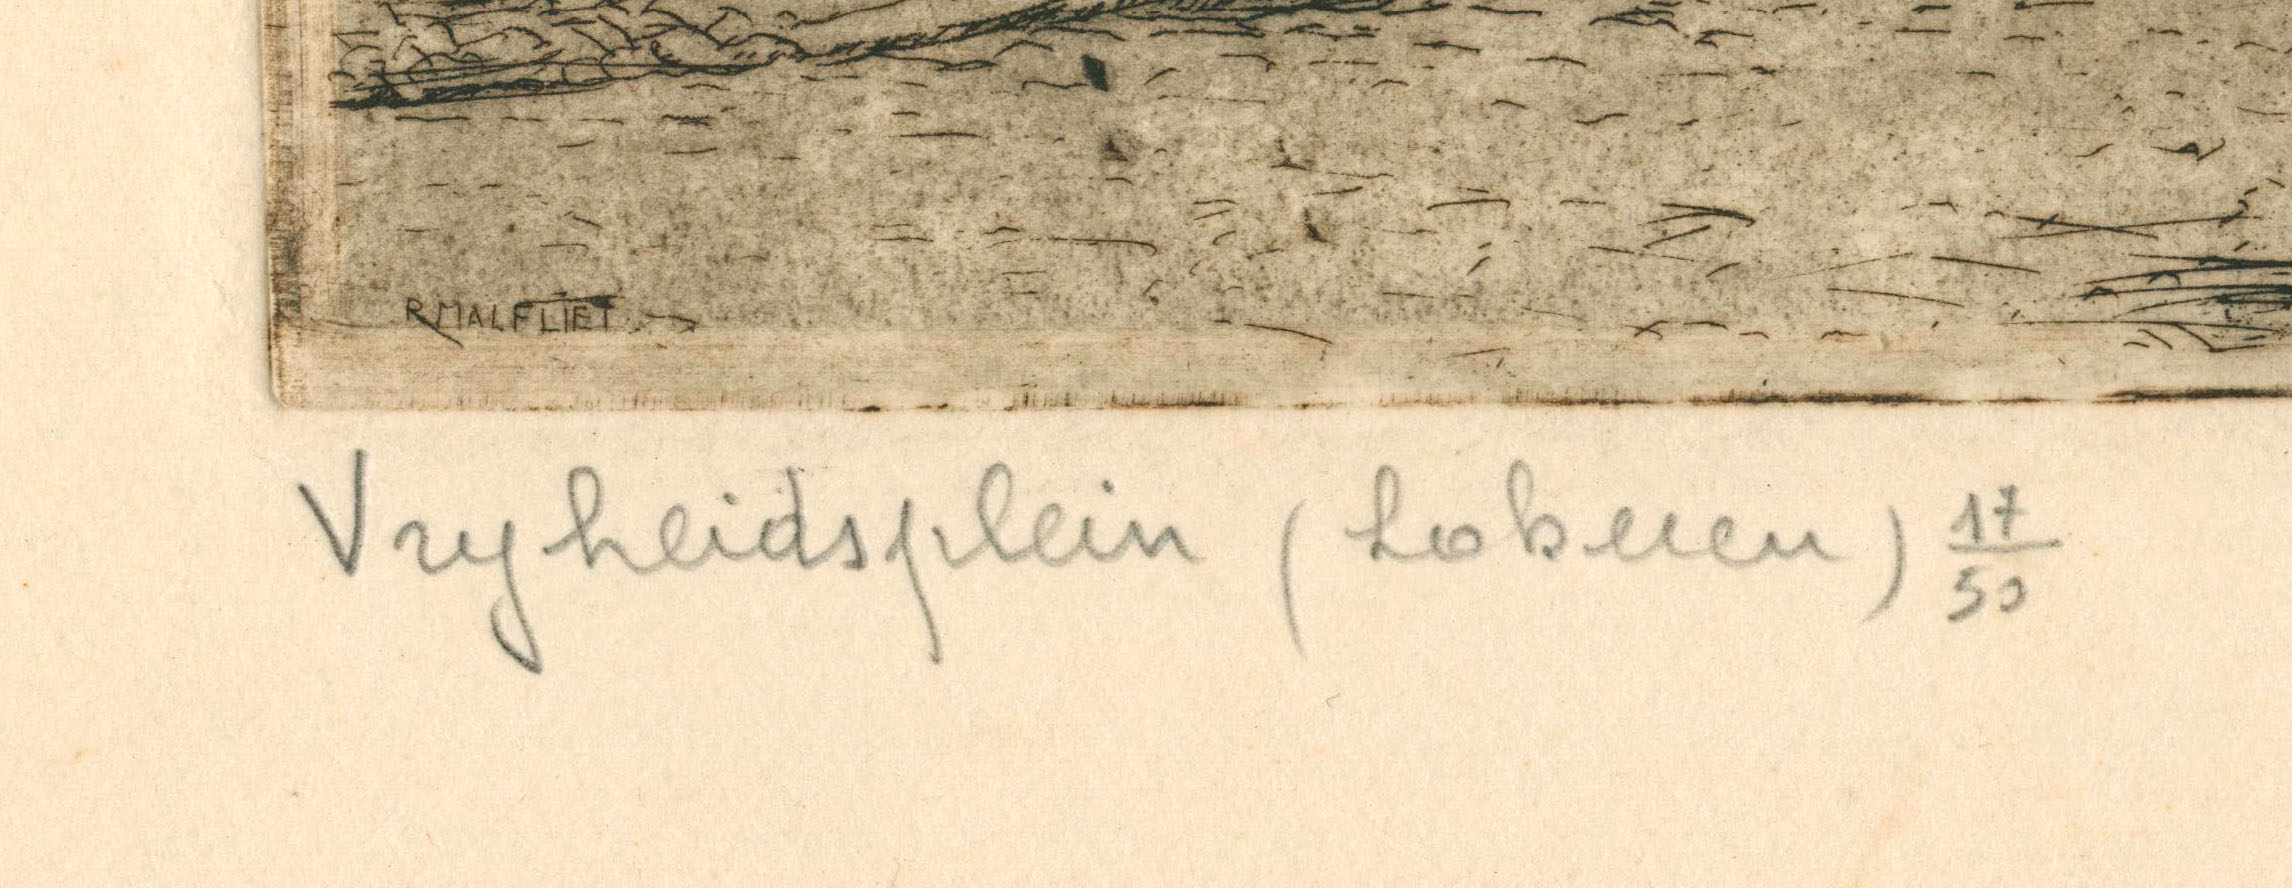 R MALFLIET
Vryheidsplein (Lokeren) 17/50